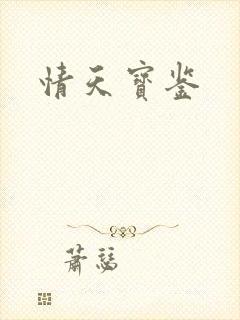 情天寶鉴
蕭瑟